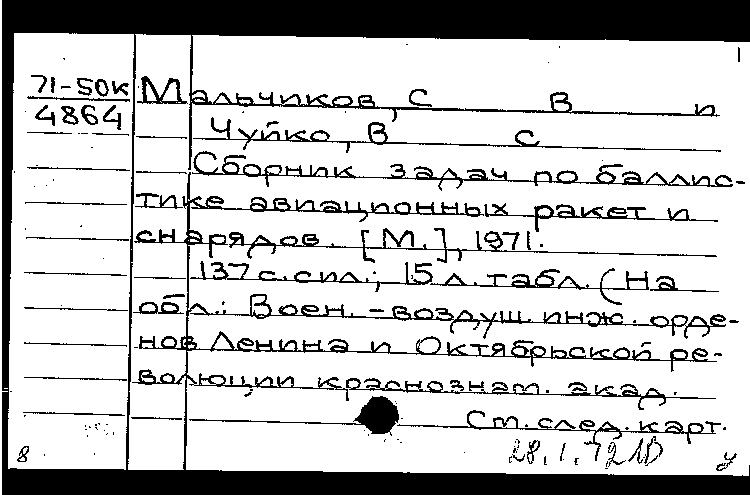 1
71-50к Мальчиков, С В и
4864 Чуйко, В С
Сборник задач по баллис-
тике авиационных ракет и
снарядов. [М.], 1971.
137 с. с ил.; 15 л. табл. (На
обл.: Воен.-воздуш. инж. орде-
нов Ленина и Октябрьской ре-
волюции краснознам. акад.
См. след. карт.
8 28.1.72